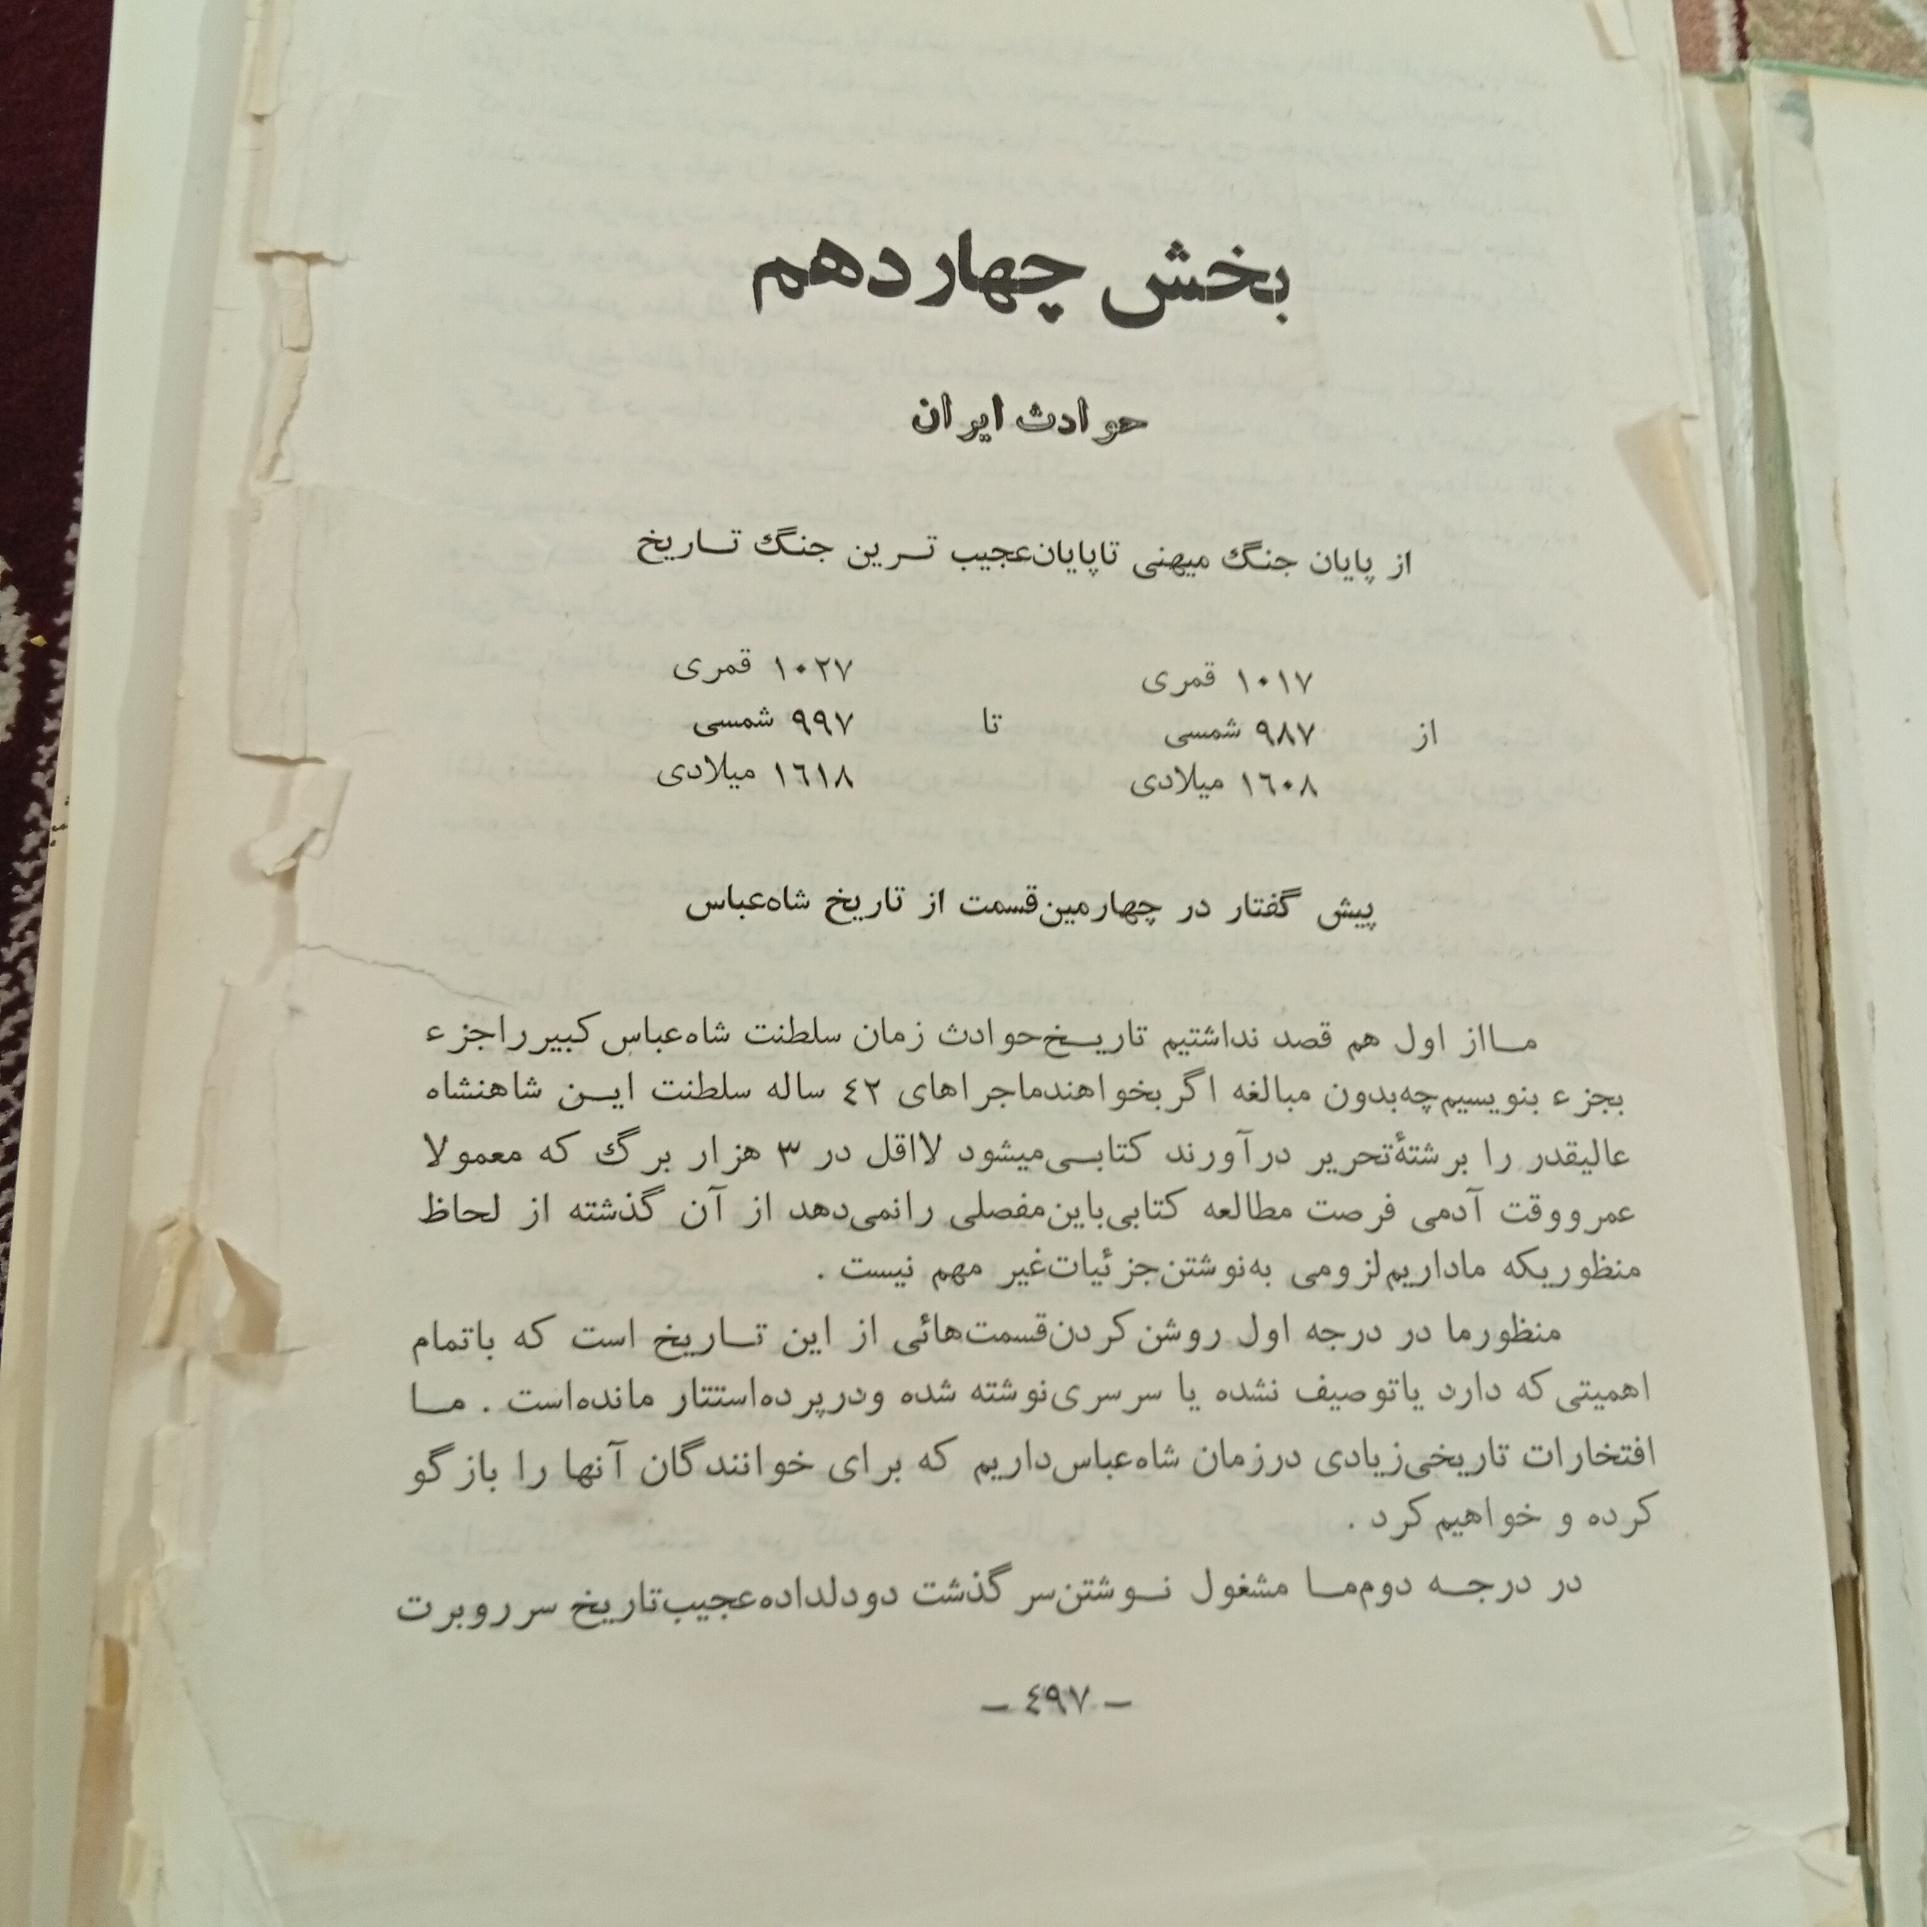 بخش چهاردهم
حوادث ایران
از پایان جنگ میهنی تاپایان‌عجیب ترین جنگ تاریخ
١٠١٧ قمری
١٠٢٧ قمری
از
٩٨٧ شمسی
تا
٩٩٧ شمسی
١٦٠٨ میلادی
١٦١٨ میلادی
پیش گفتار در چهارمین‌قسمت از تاریخ شاه‌عباس
مااز اول هم قصد نداشتیم تاریخ‌حوادث زمان سلطنت شاه‌عباس کبیرراجزء
بجزء بنویسیم‌چه‌بدون مبالغه اگربخواهندماجراهای ٤٢ ساله سلطنت این شاهنشاه
عالیقدر را برشتهٔ‌تحریر درآورند کتابی‌میشود لااقل در ٣ هزار برگ که معمولا
عمرووقت آدمی فرصت مطالعه کتابی‌باین‌مفصلی رانمی‌دهد از آن گذشته از لحاظ
منظوریکه ماداریم‌لزومی به‌نوشتن‌جزئیات‌غیر مهم نیست .
منظورما در درجه اول روشن‌کردن‌قسمت‌هائی از این تاریخ است که باتمام
اهمیتی‌که دارد یاتوصیف نشده یا سرسری‌نوشته شده ودرپرده‌استتار مانده‌است . ما
افتخارات تاریخی‌زیادی درزمان شاه‌عباس‌داریم که برای خوانندگان آنها را بازگو
کرده و خواهیم‌کرد .
در درجه دوم‌ما مشغول نوشتن‌سرگذشت دودلداده‌عجیب‌تاریخ سرروبرت
– ٤٩٧ –